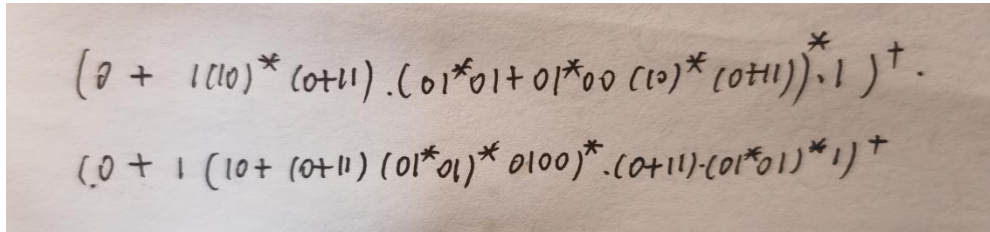 (0 + 1(10)* (0+11) . (01*01 + 01*00 (10)* (0+11))* . 1 )⁺ .
(0 + 1 (10 + (0+11) (01*01)* 0100)* . (0+11) . (01*01)* 1)⁺